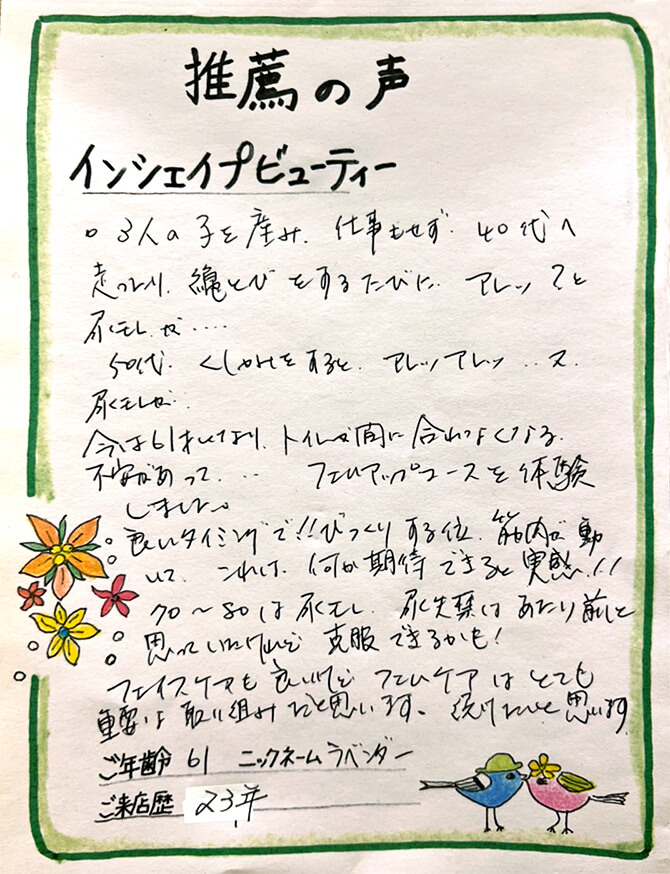 推薦の声
インシェイプビューティー
○ 3人の子を産み、仕事もせず、40代へ
走ったり、縄とびをするたびに、アレッ?と
尿モレが‥‥
50代、くしゃみをすると、アレッアレッ‥又、
尿モレが、
今は61才になり、トイレが間に合わなくなる、
不安があって、‥‥ フェムアップコースを体験
しました。
良いタイミングで!!びっくりする位、筋肉が動
いて、これは、何か期待できると実感!!
70〜80は尿モレ、尿失禁はあたり前と
思っていたけれど 克服できるかも!
フェイスケアも良いけど フェムケアはとても
重要な取り組みだと思います。続けたいと思います
ご年齢 61 ニックネーム ラベンダー
ご来店歴 23年